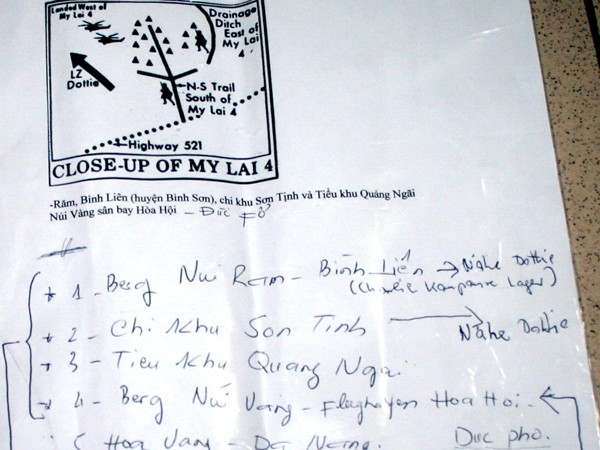 Landed West of
My Lai 4
Drainage
Ditch
East of
My Lai
4
LZ
Dottie
N-S Trail
South of
My Lai 4
Highway 521
CLOSE-UP OF MY LAI 4
-Răm, Bình Liên (huyện Bình Sơn), chi khu Sơn Tịnh và Tiểu khu Quảng Ngãi
Núi Vàng sân bay Hòa Hội - Đức Phổ
* 1 - Berg Núi Ram - Bình Liên → Nähe Dottie
(Charlie Kompanie Lager)
* 2 - Chi Khu Son Tinh → Nähe Dottie
* 3 - Tieu Khu Quang Ngai.
* 4 - Berg Nuí Vang - Flughafen Hoa Hoi -
Hoa Vang - Da Nang. Duc pho.